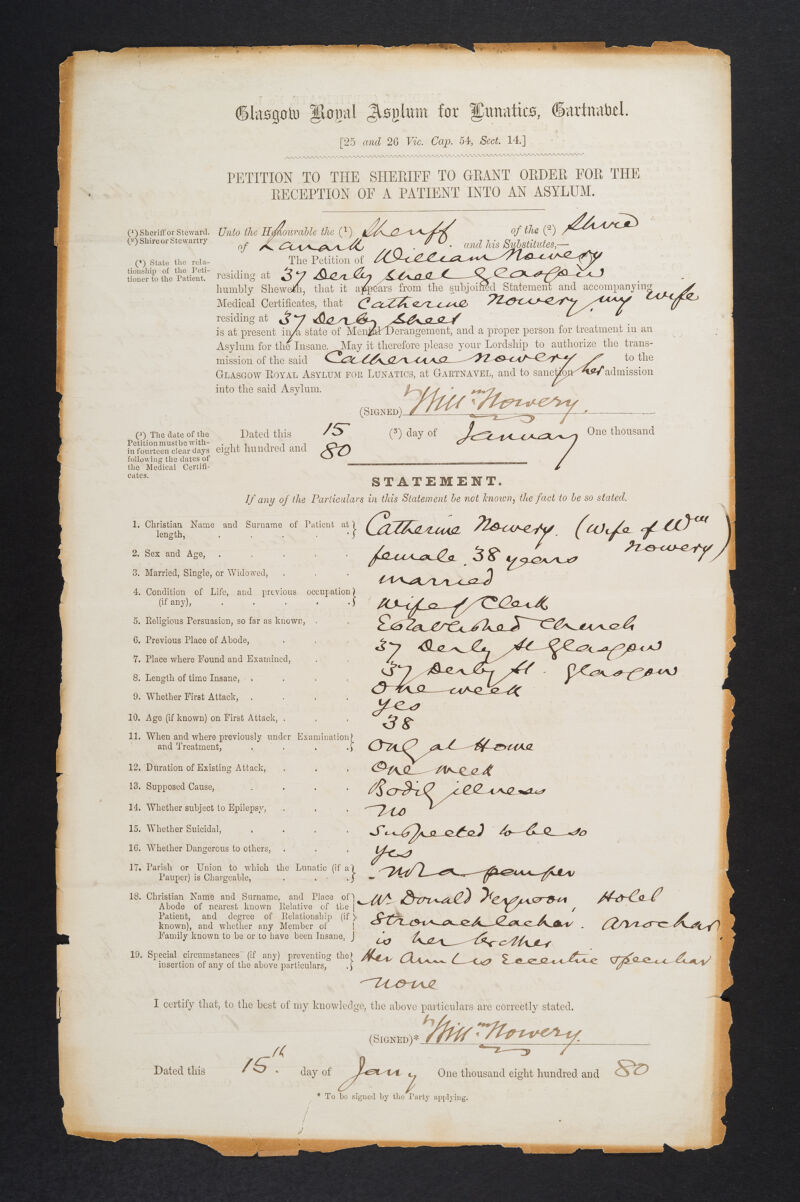 Glasgow Royal Asylum for Lunatics, Gartnavel.
[25 and 26 Vic. Cap. 54, Sect. 14.]
PETITION TO THE SHERIFF TO GRANT ORDER FOR THE
RECEPTION OF A PATIENT INTO AN ASYLUM.
(¹) Sheriff or Steward.
(²) Shire or Stewartry
Unto the Honourable the (¹) Sheriff of the (²) Shire
of Lanark and his Substitutes,—
(³) State the rela-
tionship of the Peti-
tioner to the Patient.
The Petition of William Nowery
residing at 37 Derby Street Glasgow
humbly Sheweth, that it appears from the subjoined Statement and accompanying
Medical Certificates, that Catherine Nowery my wife
residing at 37 Derby Street
is at present in a state of Mental Derangement, and a proper person for treatment in an
Asylum for the Insane. May it therefore please your Lordship to authorize the trans-
mission of the said Catherine Nowery to the
GLASGOW ROYAL ASYLUM FOR LUNATICS, at GARTNAVEL, and to sanction her admission
into the said Asylum.
(SIGNED) Willm Nowery.
(³) The date of the
Petition must be with-
in fourteen clear days
following the dates of
the Medical Certifi-
cates.
Dated this 15 (³) day of January One thousand
eight hundred and 80
STATEMENT.
If any of the Particulars in this Statement be not known, the fact to be so stated.
1. Christian Name and Surname of Patient at length, Catherine Nowery. (Wife of Wm Nowery)
2. Sex and Age, female. 38 years
3. Married, Single, or Widowed, married
4. Condition of Life, and previous occupation (if any), Wife of Clerk
5. Religious Persuasion, so far as known, Established Church
6. Previous Place of Abode, 37 Derby St Glasgow
7. Place where Found and Examined, 37 Derby St. Glasgow
8. Length of time Insane, One week
9. Whether First Attack, Yes
10. Age (if known) on First Attack, 38
11. When and where previously under Examination and Treatment, Only at Home
12. Duration of Existing Attack, One week
13. Supposed Cause, Bodily illness
14. Whether subject to Epilepsy, No
15. Whether Suicidal, Suspected to be so
16. Whether Dangerous to others, Yes
17. Parish or Union to which the Lunatic (if a Pauper) is Chargeable, Not a pauper
18. Christian Name and Surname, and Place of Mr Donald Ferguson, Hotel
Abode of nearest known Relative of the
Patient, and degree of Relationship (if Stronachlachar. Arrochar
known), and whether any Member of
Family known to be or to have been Insane, is her brother
Her Aunt is Eccentric & peculiar
19. Special circumstances (if any) preventing the insertion of any of the above particulars, none
I certify that, to the best of my knowledge, the above particulars are correctly stated.
(SIGNED)* Willm Nowery.
Dated this 15th. day of Jany One thousand eight hundred and 80
* To be signed by the Party applying.